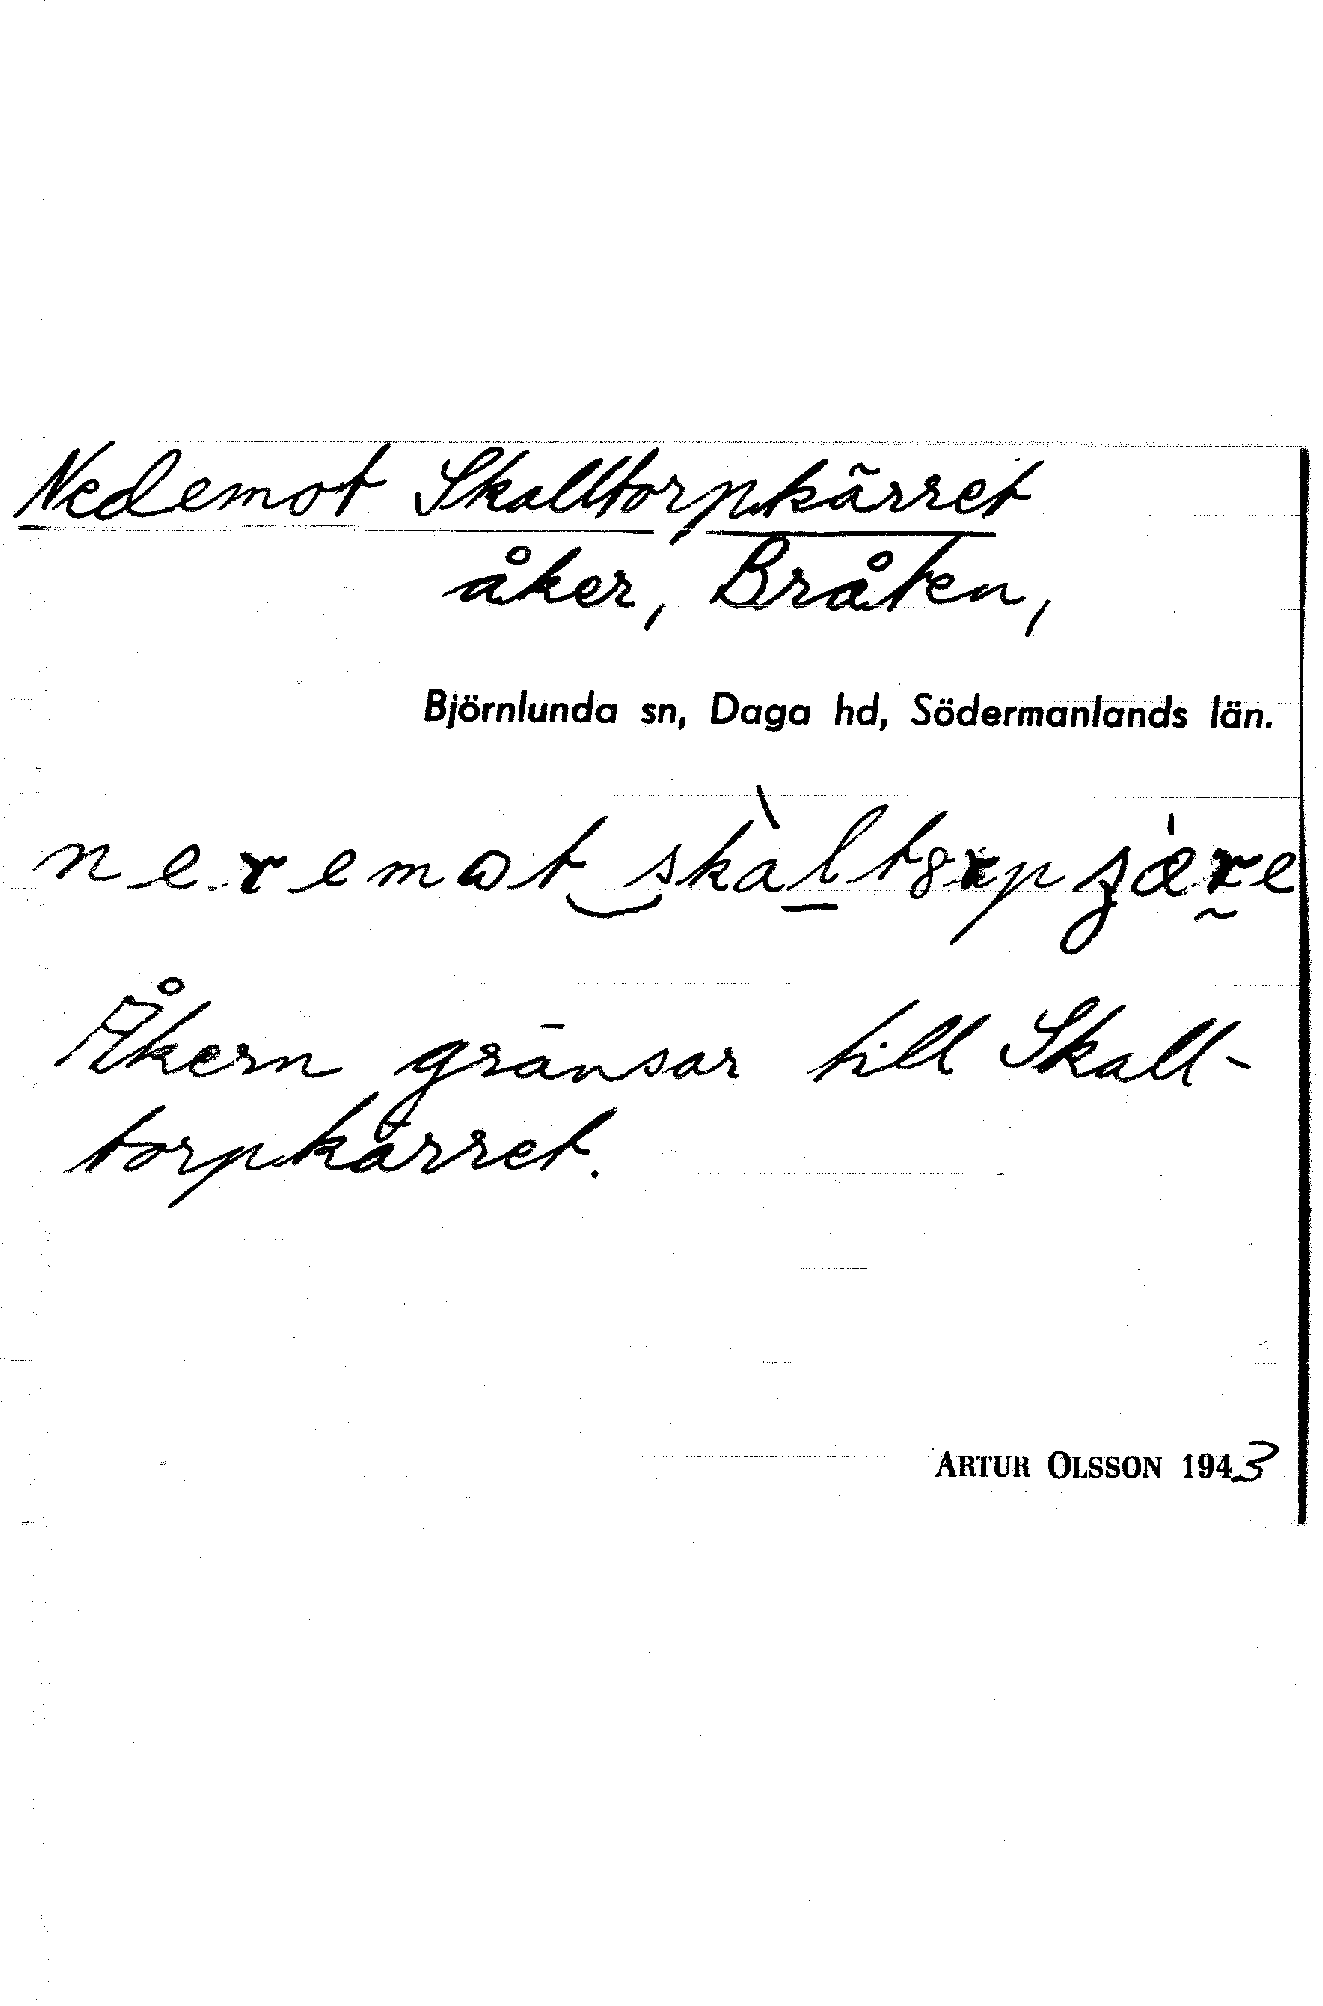 Nedemot Skalltorpkärret
åker, Bråten,
Björnlunda sn, Daga hd, Södermanlands län.
Åkern gränsar till Skall-
torpkärret.
ARTUR OLSSON 1943